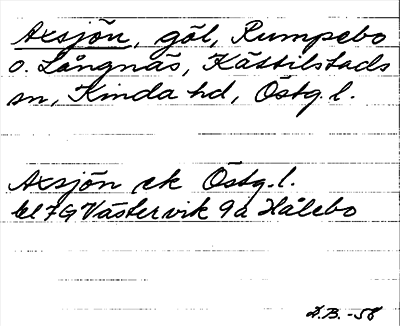 Axsjön, göl, Rumpebo
o. Långnäs, Kättilstads
sn, Kinda hd, Östg.l.
Axsjön ek Östg.l.
bl 7G Västervik 9a Hålebo
D.B. -58